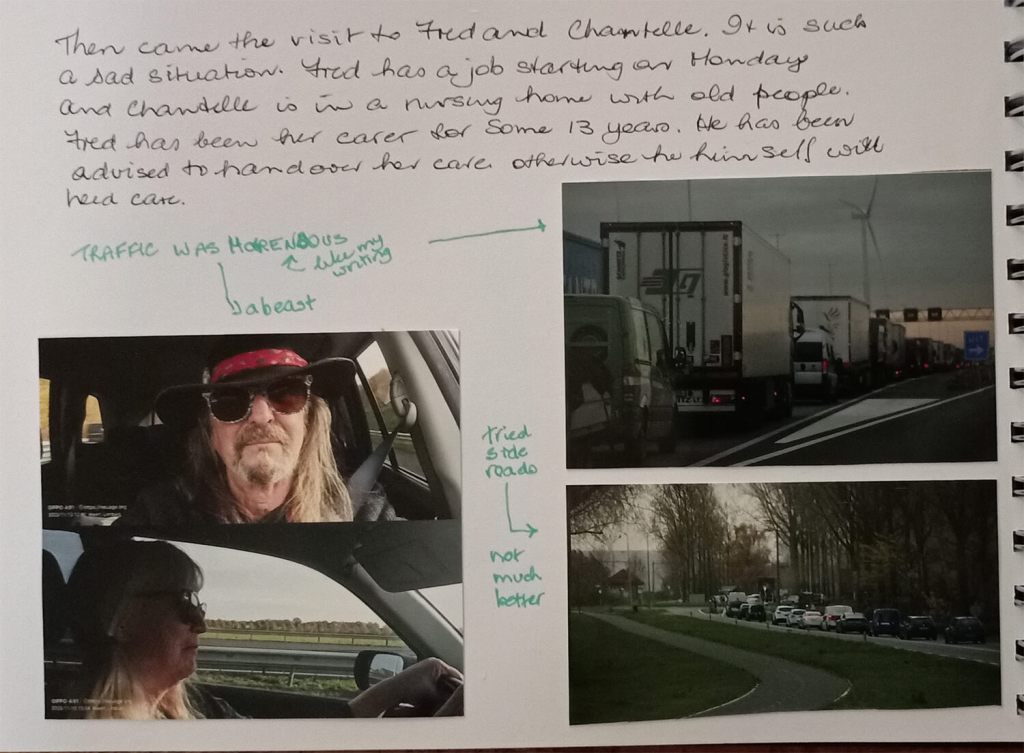 Then came the visit to Fred and Chantelle. It is such
a sad situation. Fred has a job starting on Monday
and Chantelle is in a nursing home with old people.
Fred has been her carer for some 13 years. He has been
advised to handover her care otherwise he himself will
need care.
TRAFFIC WAS HORENDOUS
like my
writing
abeast
tried
side
roads
not
much
better
OPPO A91
OPPO A91